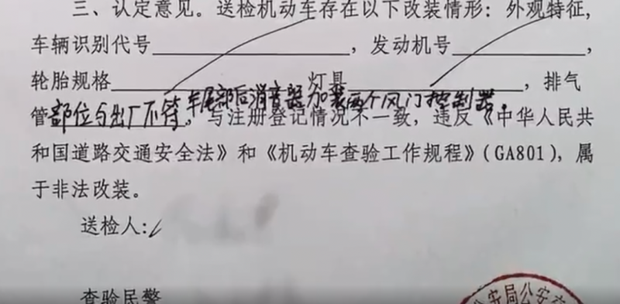 三、认定意见。送检机动车存在以下改装情形：外观特征，
车辆识别代号＿＿＿＿＿＿＿＿，发动机号＿＿＿＿＿＿，
轮胎规格＿＿＿＿＿＿＿＿灯具＿＿＿＿＿＿＿＿，排气
管部位与出厂不符 车尾部后消音器加装两个风门控制器。，与注册登记情况不一致，违反《中华人民共
和国道路交通安全法》和《机动车查验工作规程》(GA801)，属
于非法改装。
送检人：
查验民警
安局公安交